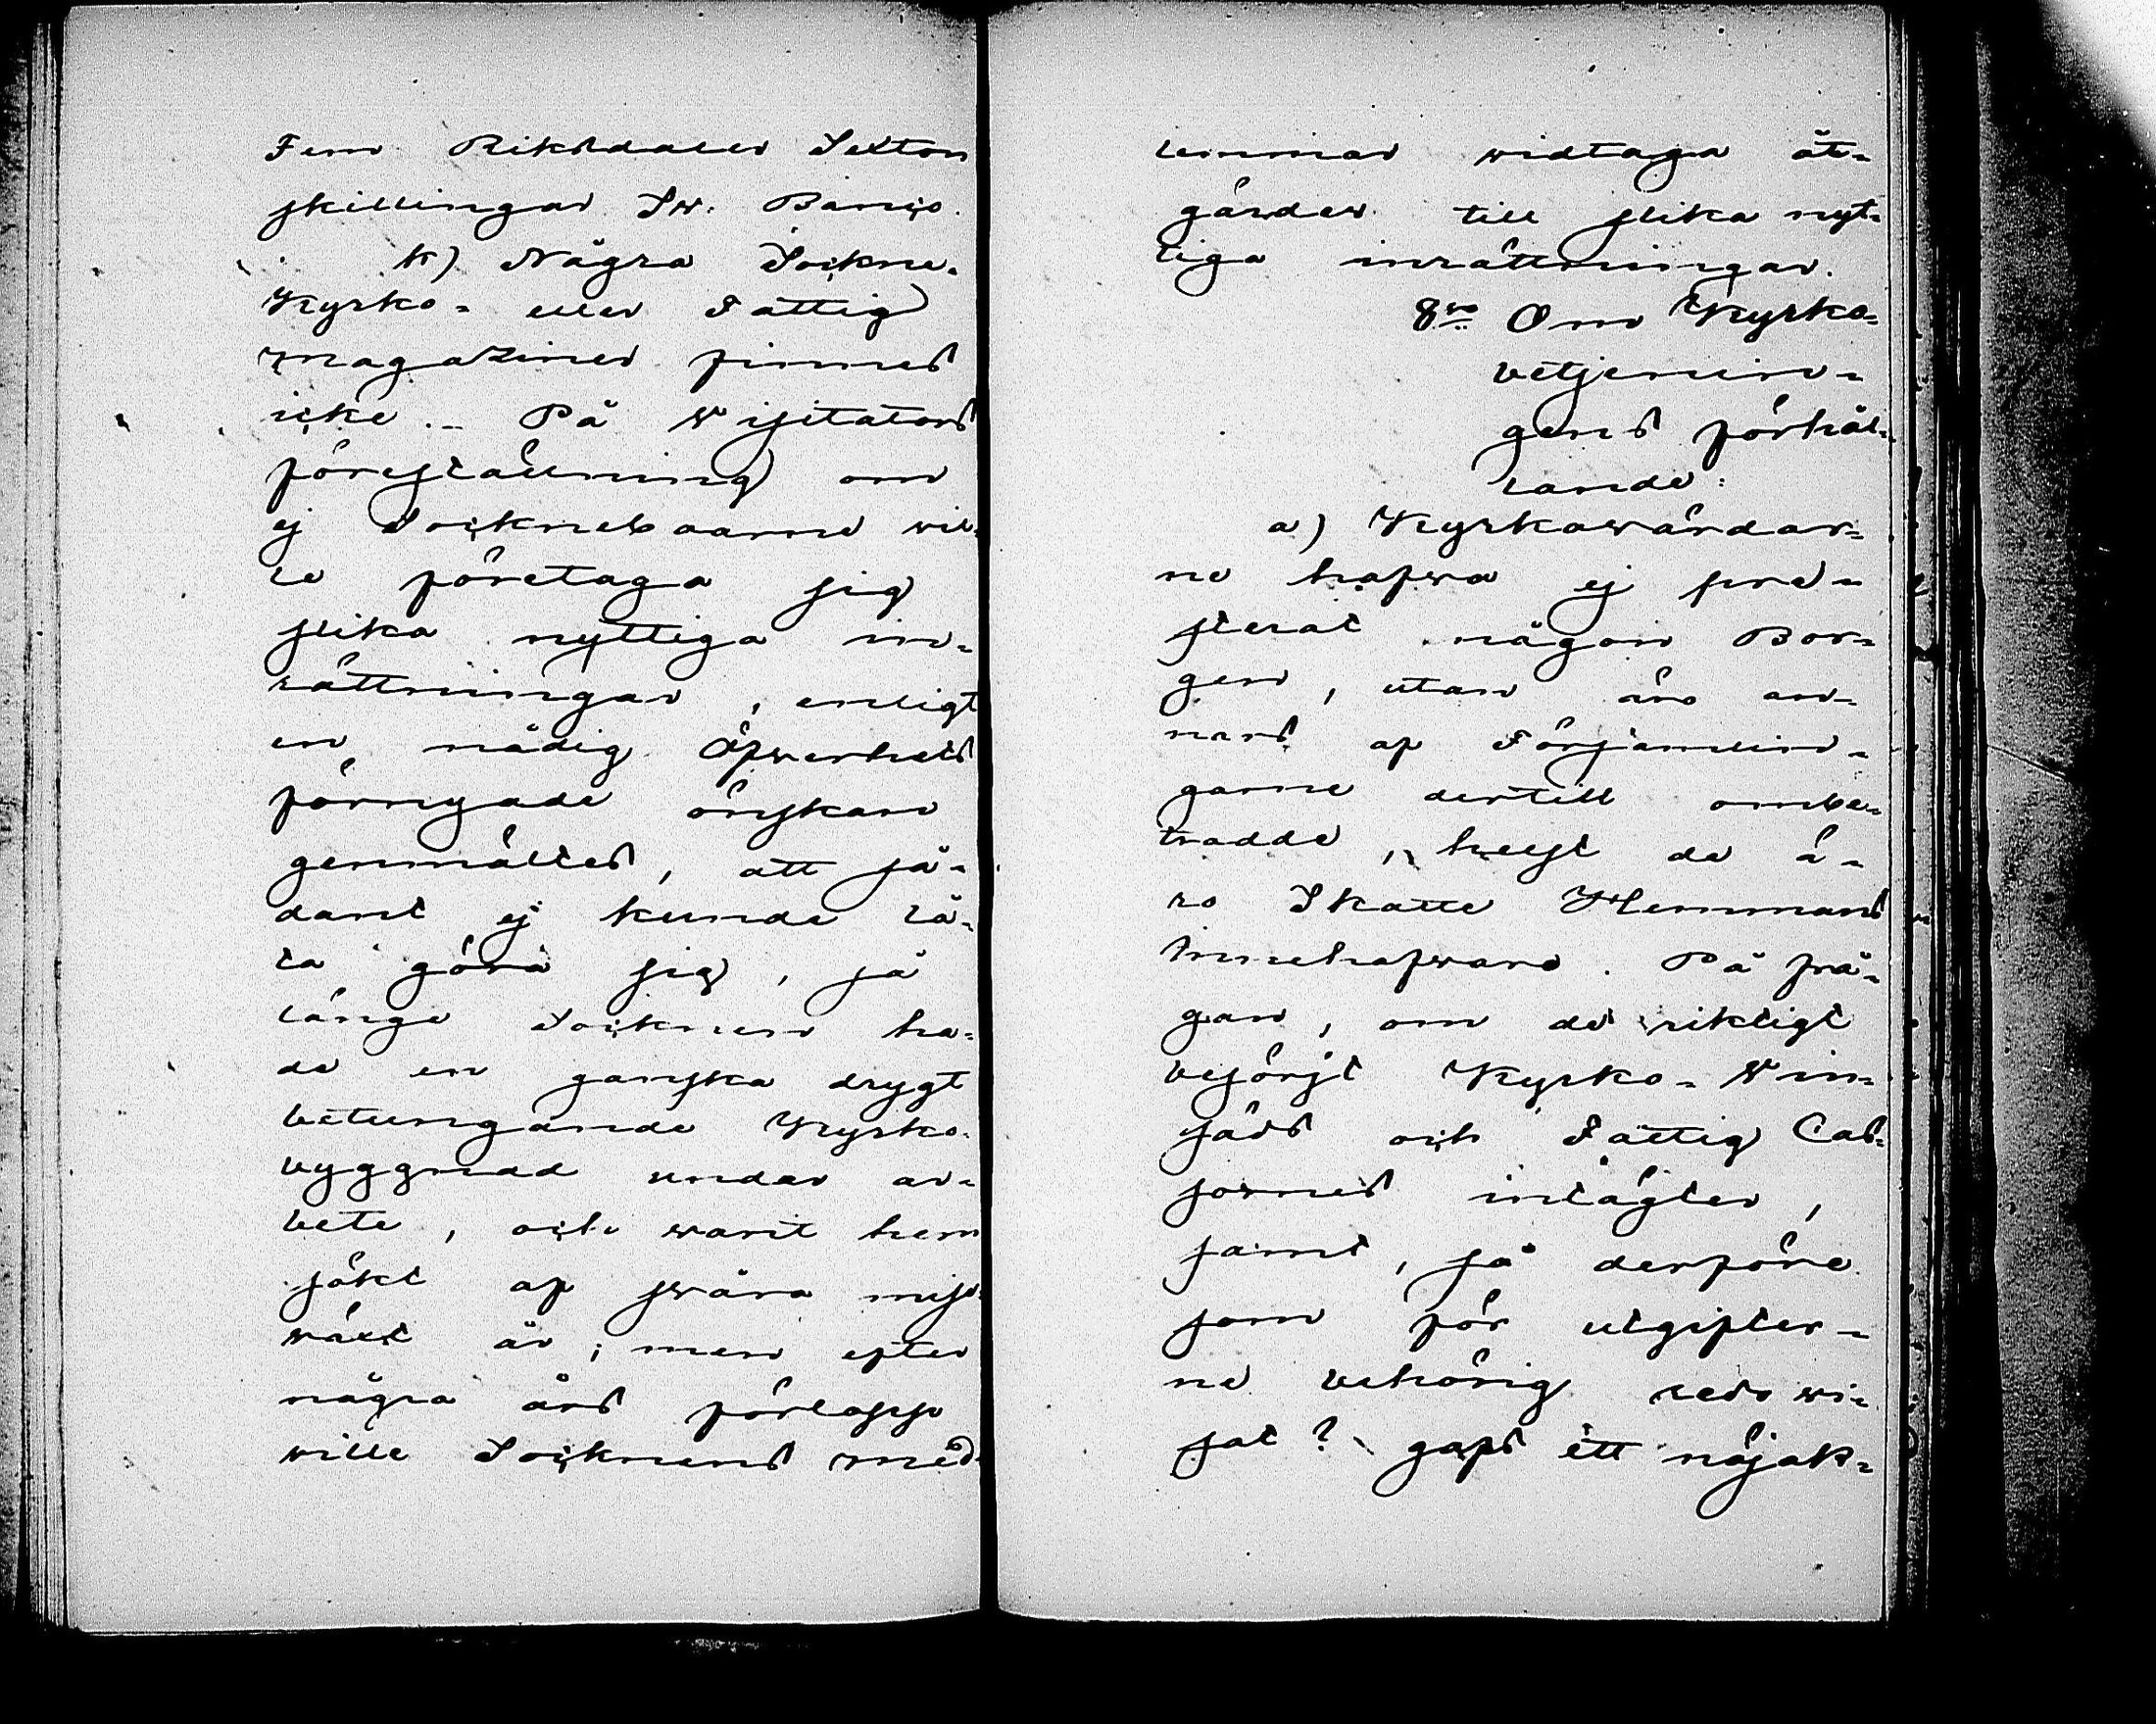 Fem Riksdaler Sexton
skillingar Sw. Banco.
k) Några Sockne-
Kyrko- eller Fattig
magaziner finnes
icke. – På Visitators
föreställning om
ej Sockneboarne vil-
le företaga sig
slika nyttiga in-
rättningar, enligt
en nådig Öfverhets
förnyade önskan
genmältes, att så-
dant ej kunde lå-
ta göra sig, så
länge Socknen ha-
de en ganska drygt
betungande Kyrko-
byggnad under ar-
bete, och warit hem
sökt af swåra miss-
wäxt år; men efter
några års förlopp
wille Socknens med-
lemmar widtaga åt-
gärder till slika nyt-
tiga inrättningar.
8vo Om Kyrko-
betjenin-
gens förhål-
lande:
a) Kyrkowärdar-
ne hafwa ej pre-
sterat någon Bor-
gen, utan äro an-
nars af Församlin-
garne dertill ombe-
trodde, helst de ä-
ro Skatte Hemmans
Innehafware. På frå-
gan, om de riktigt
besörjt Kyrko- Vin-
säds och Fattig Cas-
sornes intägter,
samt, så derföre
som för utgifter-
ne behörig redo wi-
sat? gafs ett nöjak-